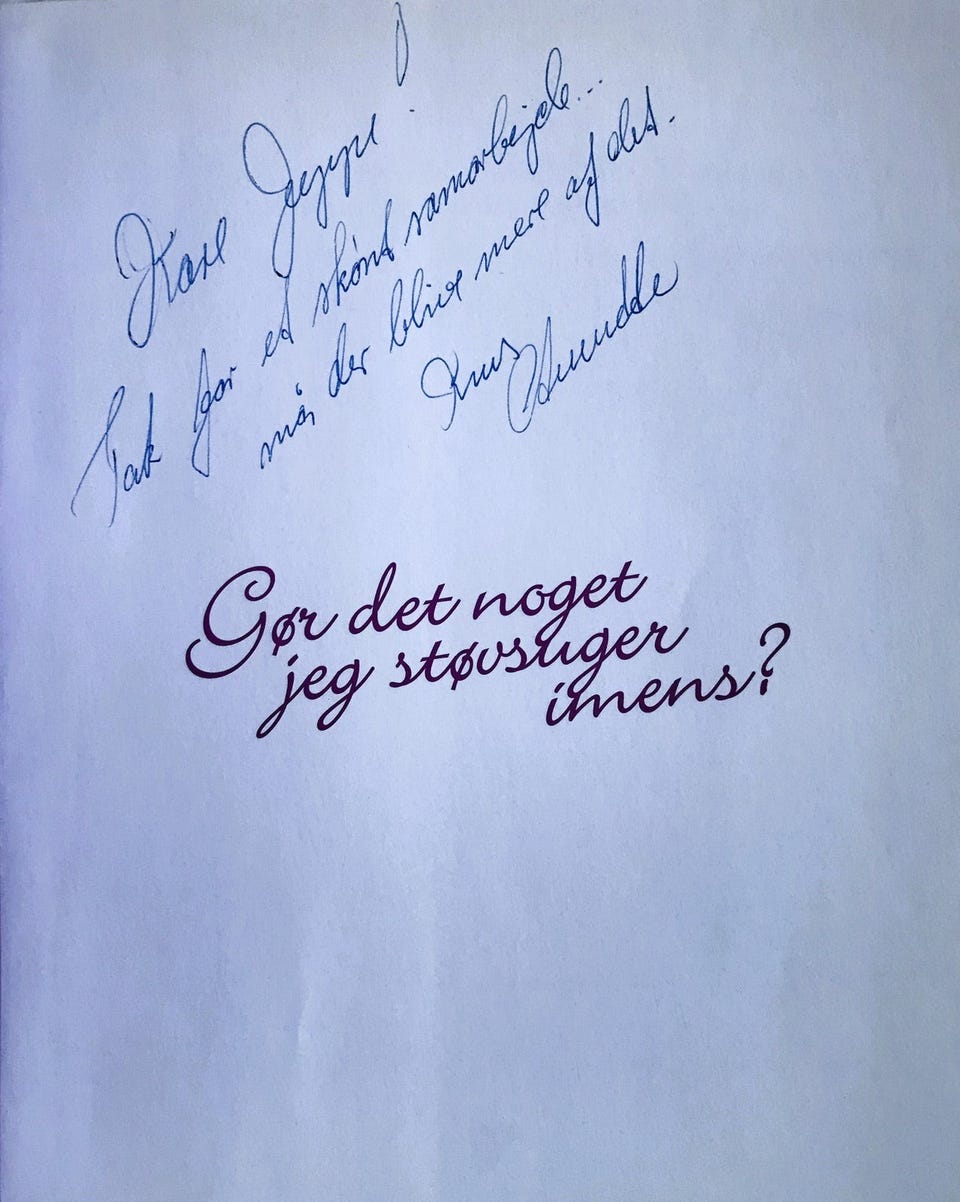 Kære Jeppe!
Tak for et skønt samarbejde...
må der blive mere af det.
Knus
Gør det noget
jeg støvsuger
imens?